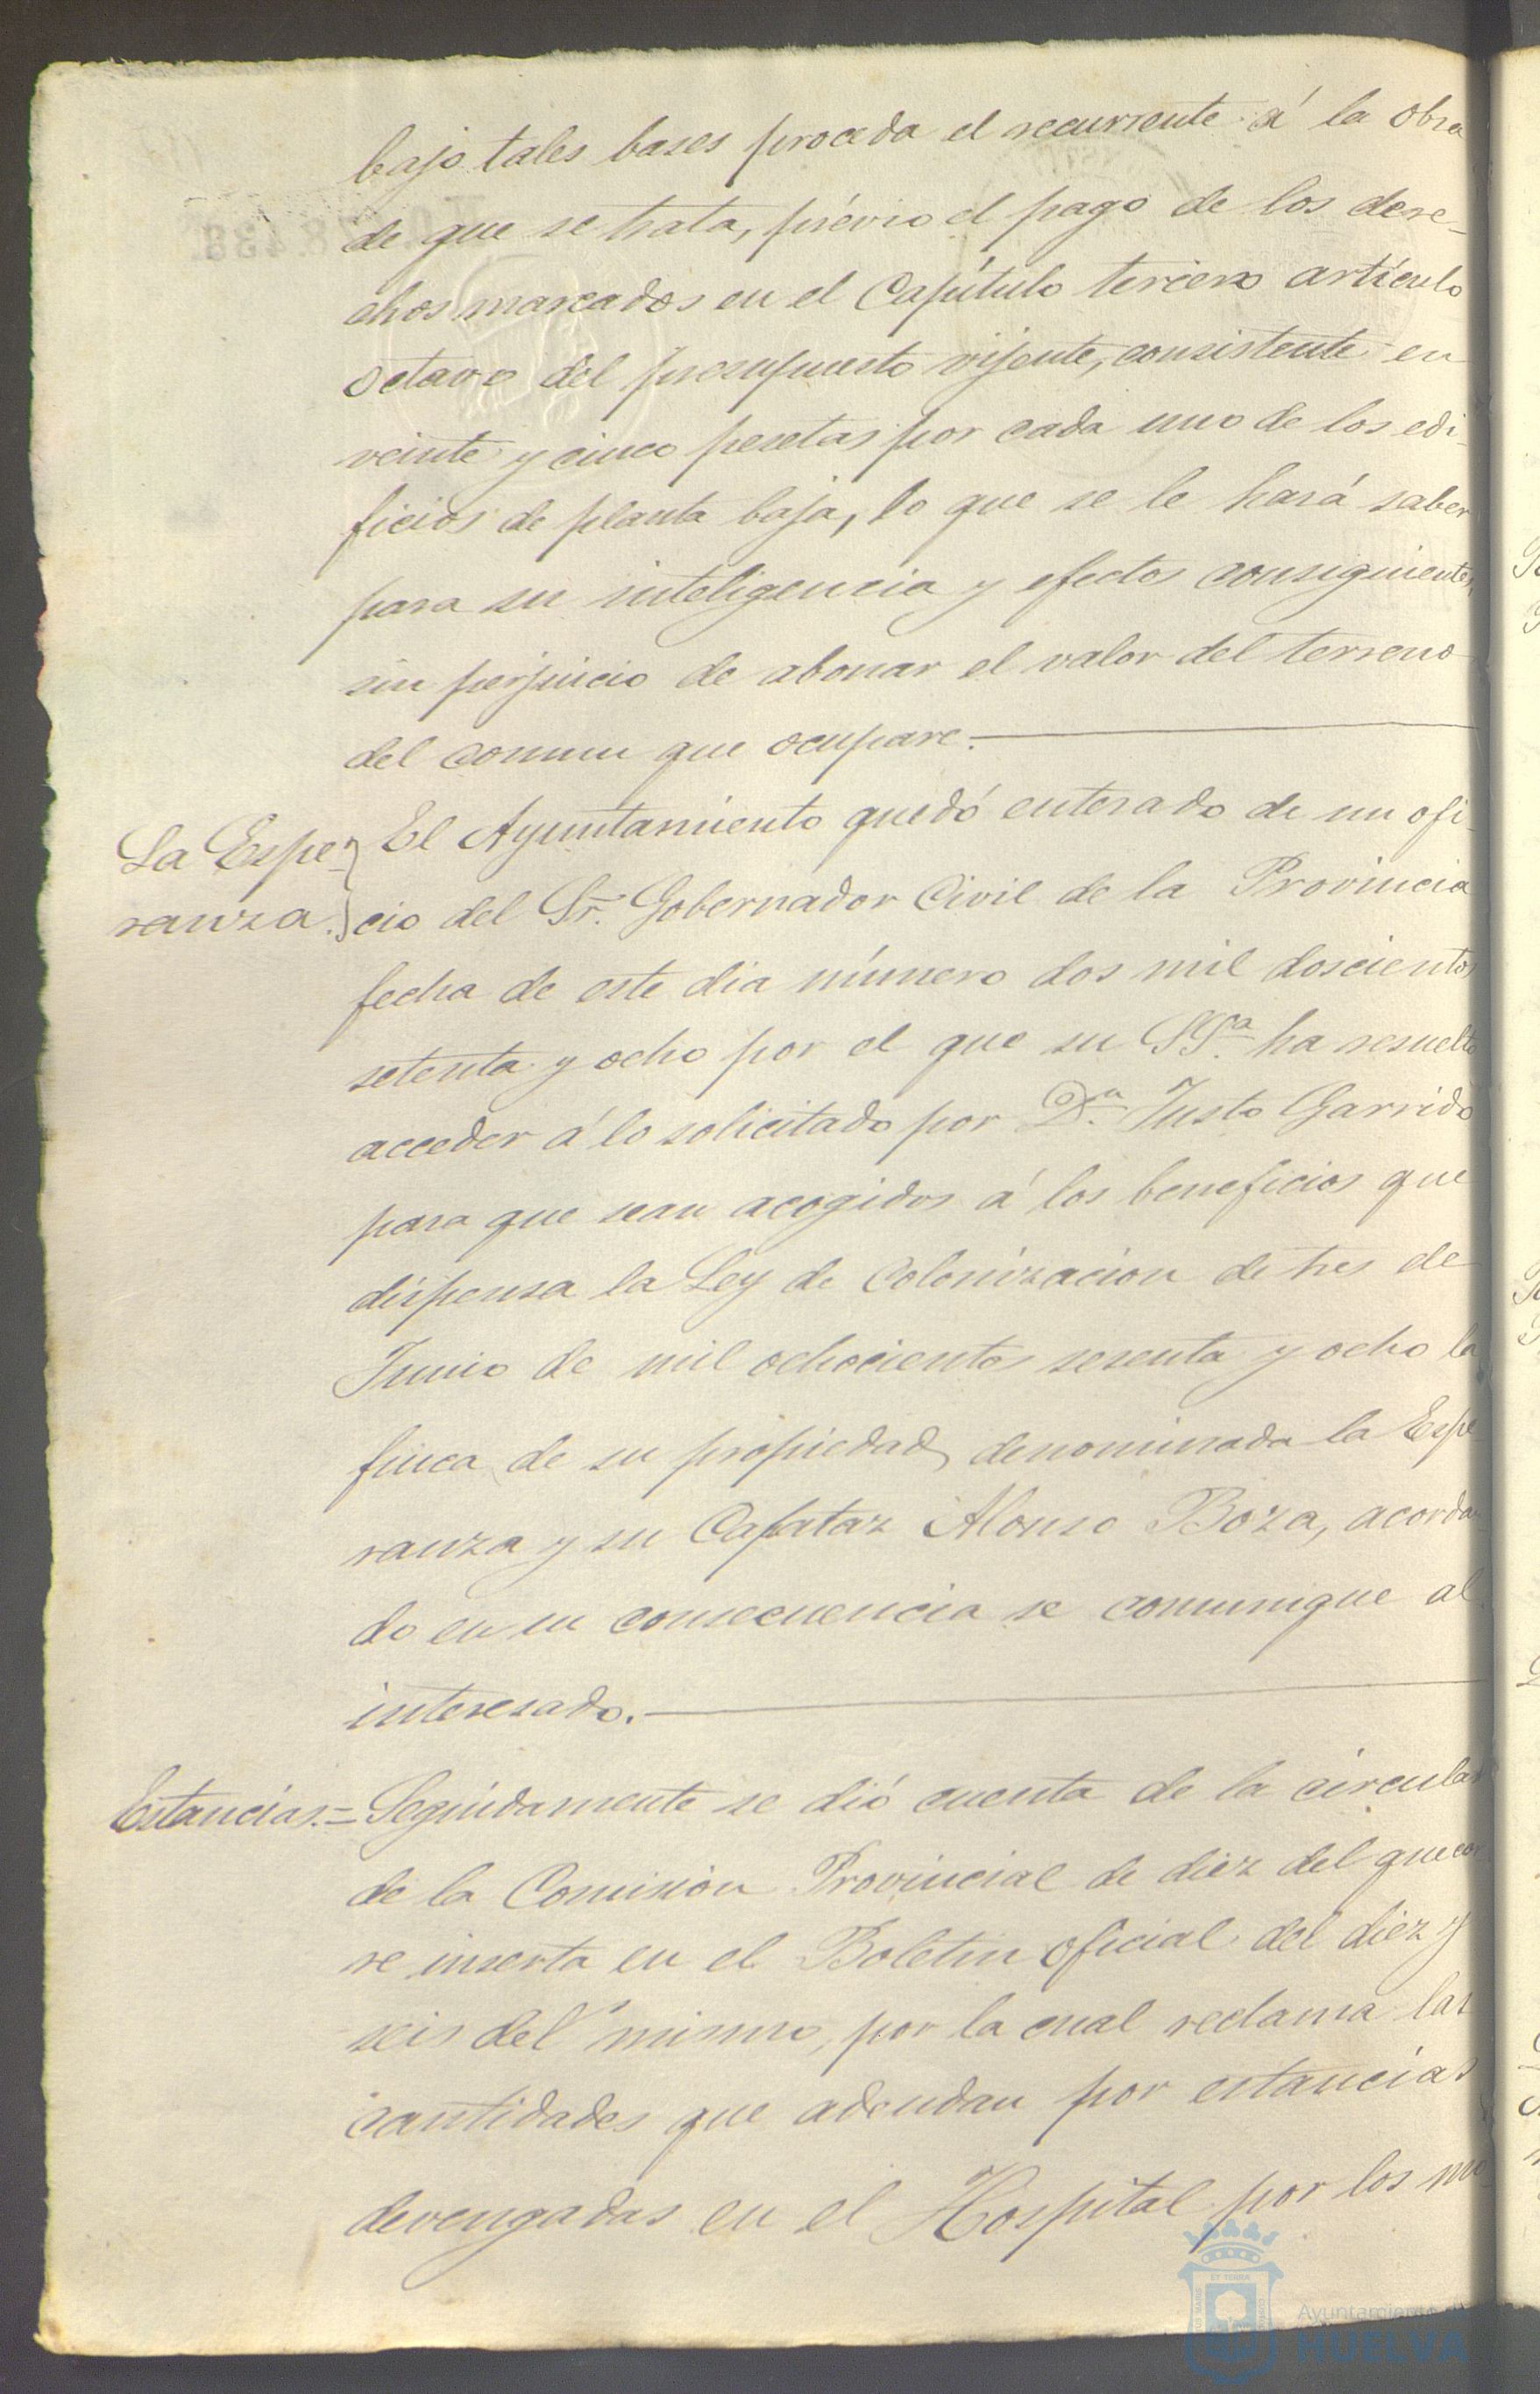 bajo tales bases proceda el recurrente á la obra
de que se trata, prévio el pago de los dere-
chos marcados en el Capítulo tercero artículo
octavo del presupuesto vijente, consistente en
veinte y cinco pesetas por cada uno de los edi-
ficios de planta baja, lo que se le hará saber
para su inteligencia y efectos consiguientes,
sin perjuicio de abonar el valor del terreno
del comun que ocupare.
La Espe-
ranza.
El Ayuntamiento quedó enterado de un ofi-
cio del Sr. Gobernador Civil de la Provincia
fecha de este dia número dos mil doscientos
setenta y ocho por el que su SSª ha resuelto
acceder á lo solicitado por Dn. Justo Garrido
para que sean acogidos á los beneficios que
dispensa la Ley de Colonizacion de tres de
Junio de mil ochocientos sesenta y ocho la
finca de su propiedad denominada la Espe
ranza y su Capataz Alonso Boza, acorda
do en su consecuencia se comunique al
interesado.
Estancias.= Seguidamente se dió cuenta de la circular
de la Comision Provincial de diez del que cor
re inserta en el Boletin oficial del diez y
seis del mismo, por la cual reclama las
cantidades que adeudan por estancias
devengadas en el Hospital por los mo
Ayuntamiento de
HUELVA